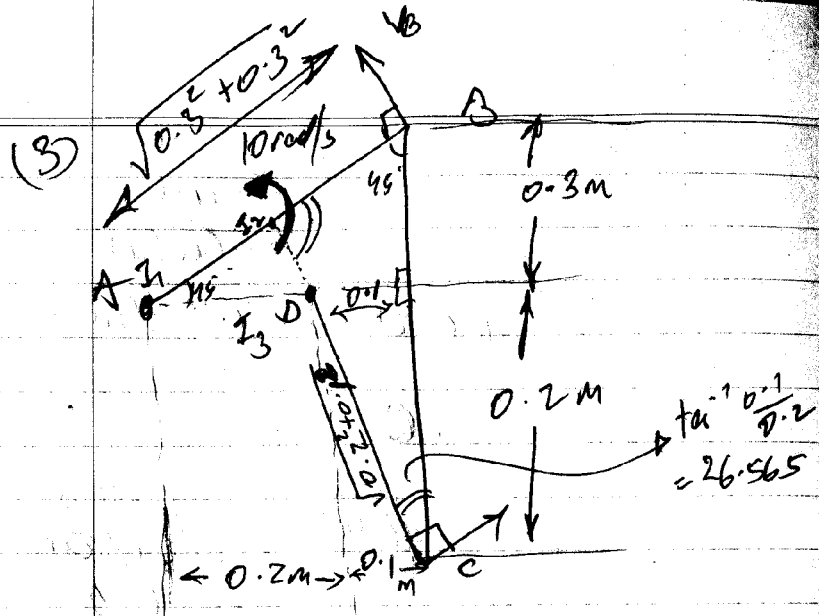 VB
√0.3² + 0.3²
B
(3)
10 rad/s
45°
0.3 M
A
I₁
45
D
0.1
I₃
0.2 M
tan⁻¹ 0.1/0.2
= 26.565
← 0.2m →
0.1 M
C